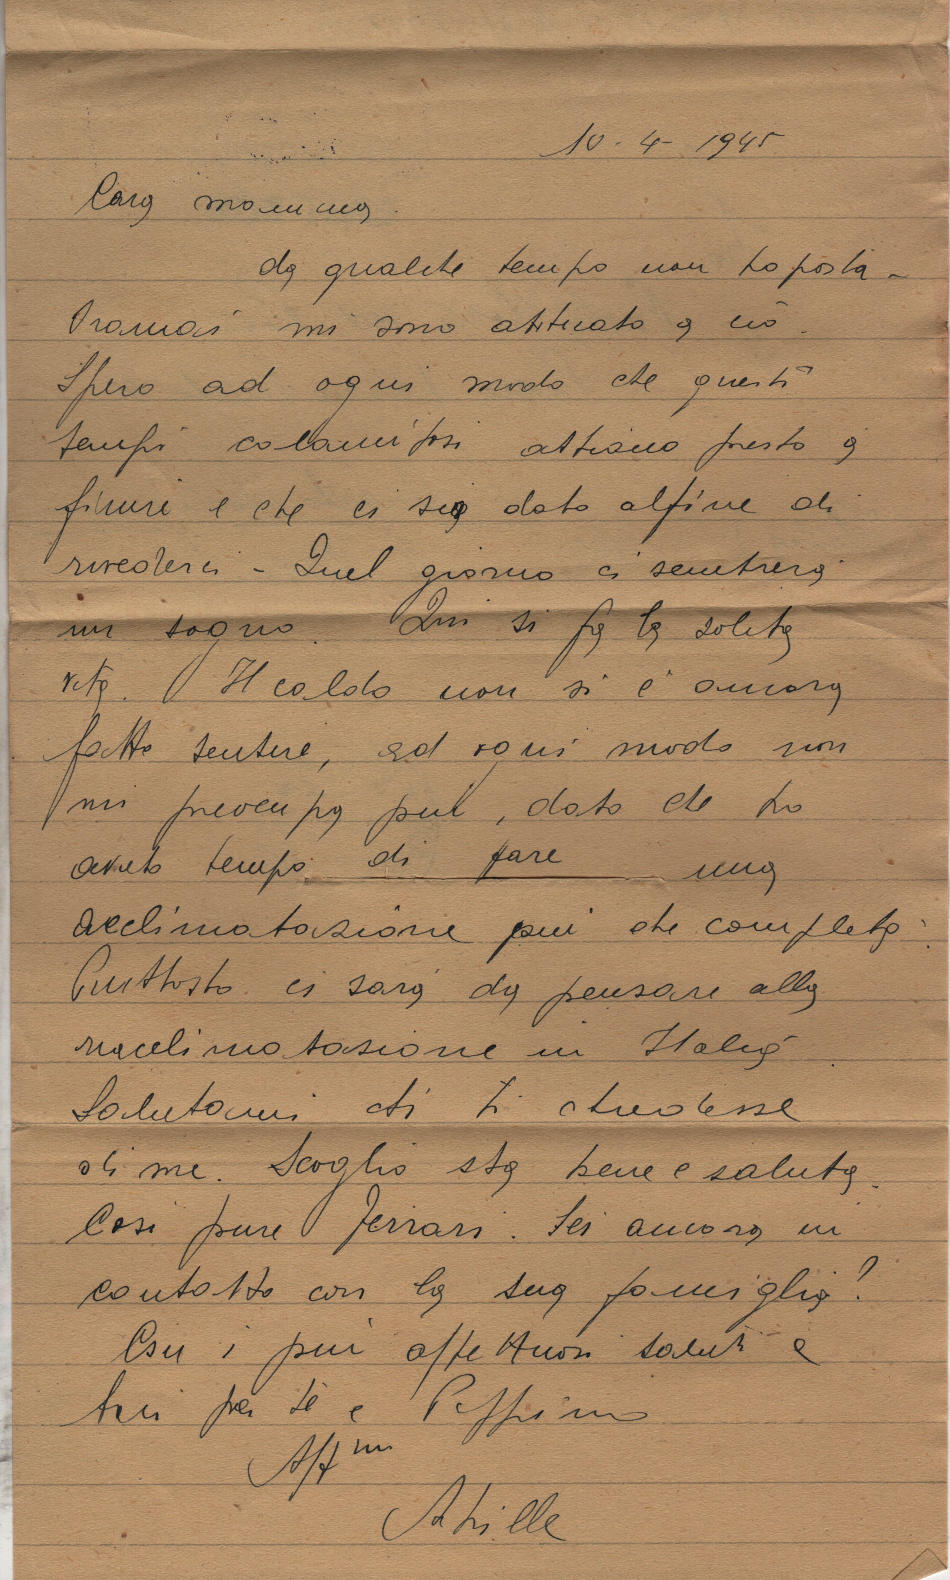 10-4-1945
Cara mamma.
da qualche tempo non ho posta -
Oramai mi sono abituato a ciò.
Spero ad ogni modo che questi
tempi calamitosi abbiano presto a
finire e che ci sia dato alfine di
rivederci - Quel giorno ci sembrerà
un sogno. Qui si fa la solita
vita. Il caldo non si è ancora
fatto sentire, ad ogni modo non
mi preoccupa più, dato che ho
avuto tempo di fare una
acclimatazione più che completa.
Piuttosto ci sarà da pensare alla
riacclimatazione in Italia.
Salutami chi ti chiedesse
di me. Scoglio sta bene e saluta.
Così pure Ferrari. Sei ancora in
contatto con la sua famiglia?
Con i più affettuosi saluti e
baci per te e Peppino
Aff.mo
Achille